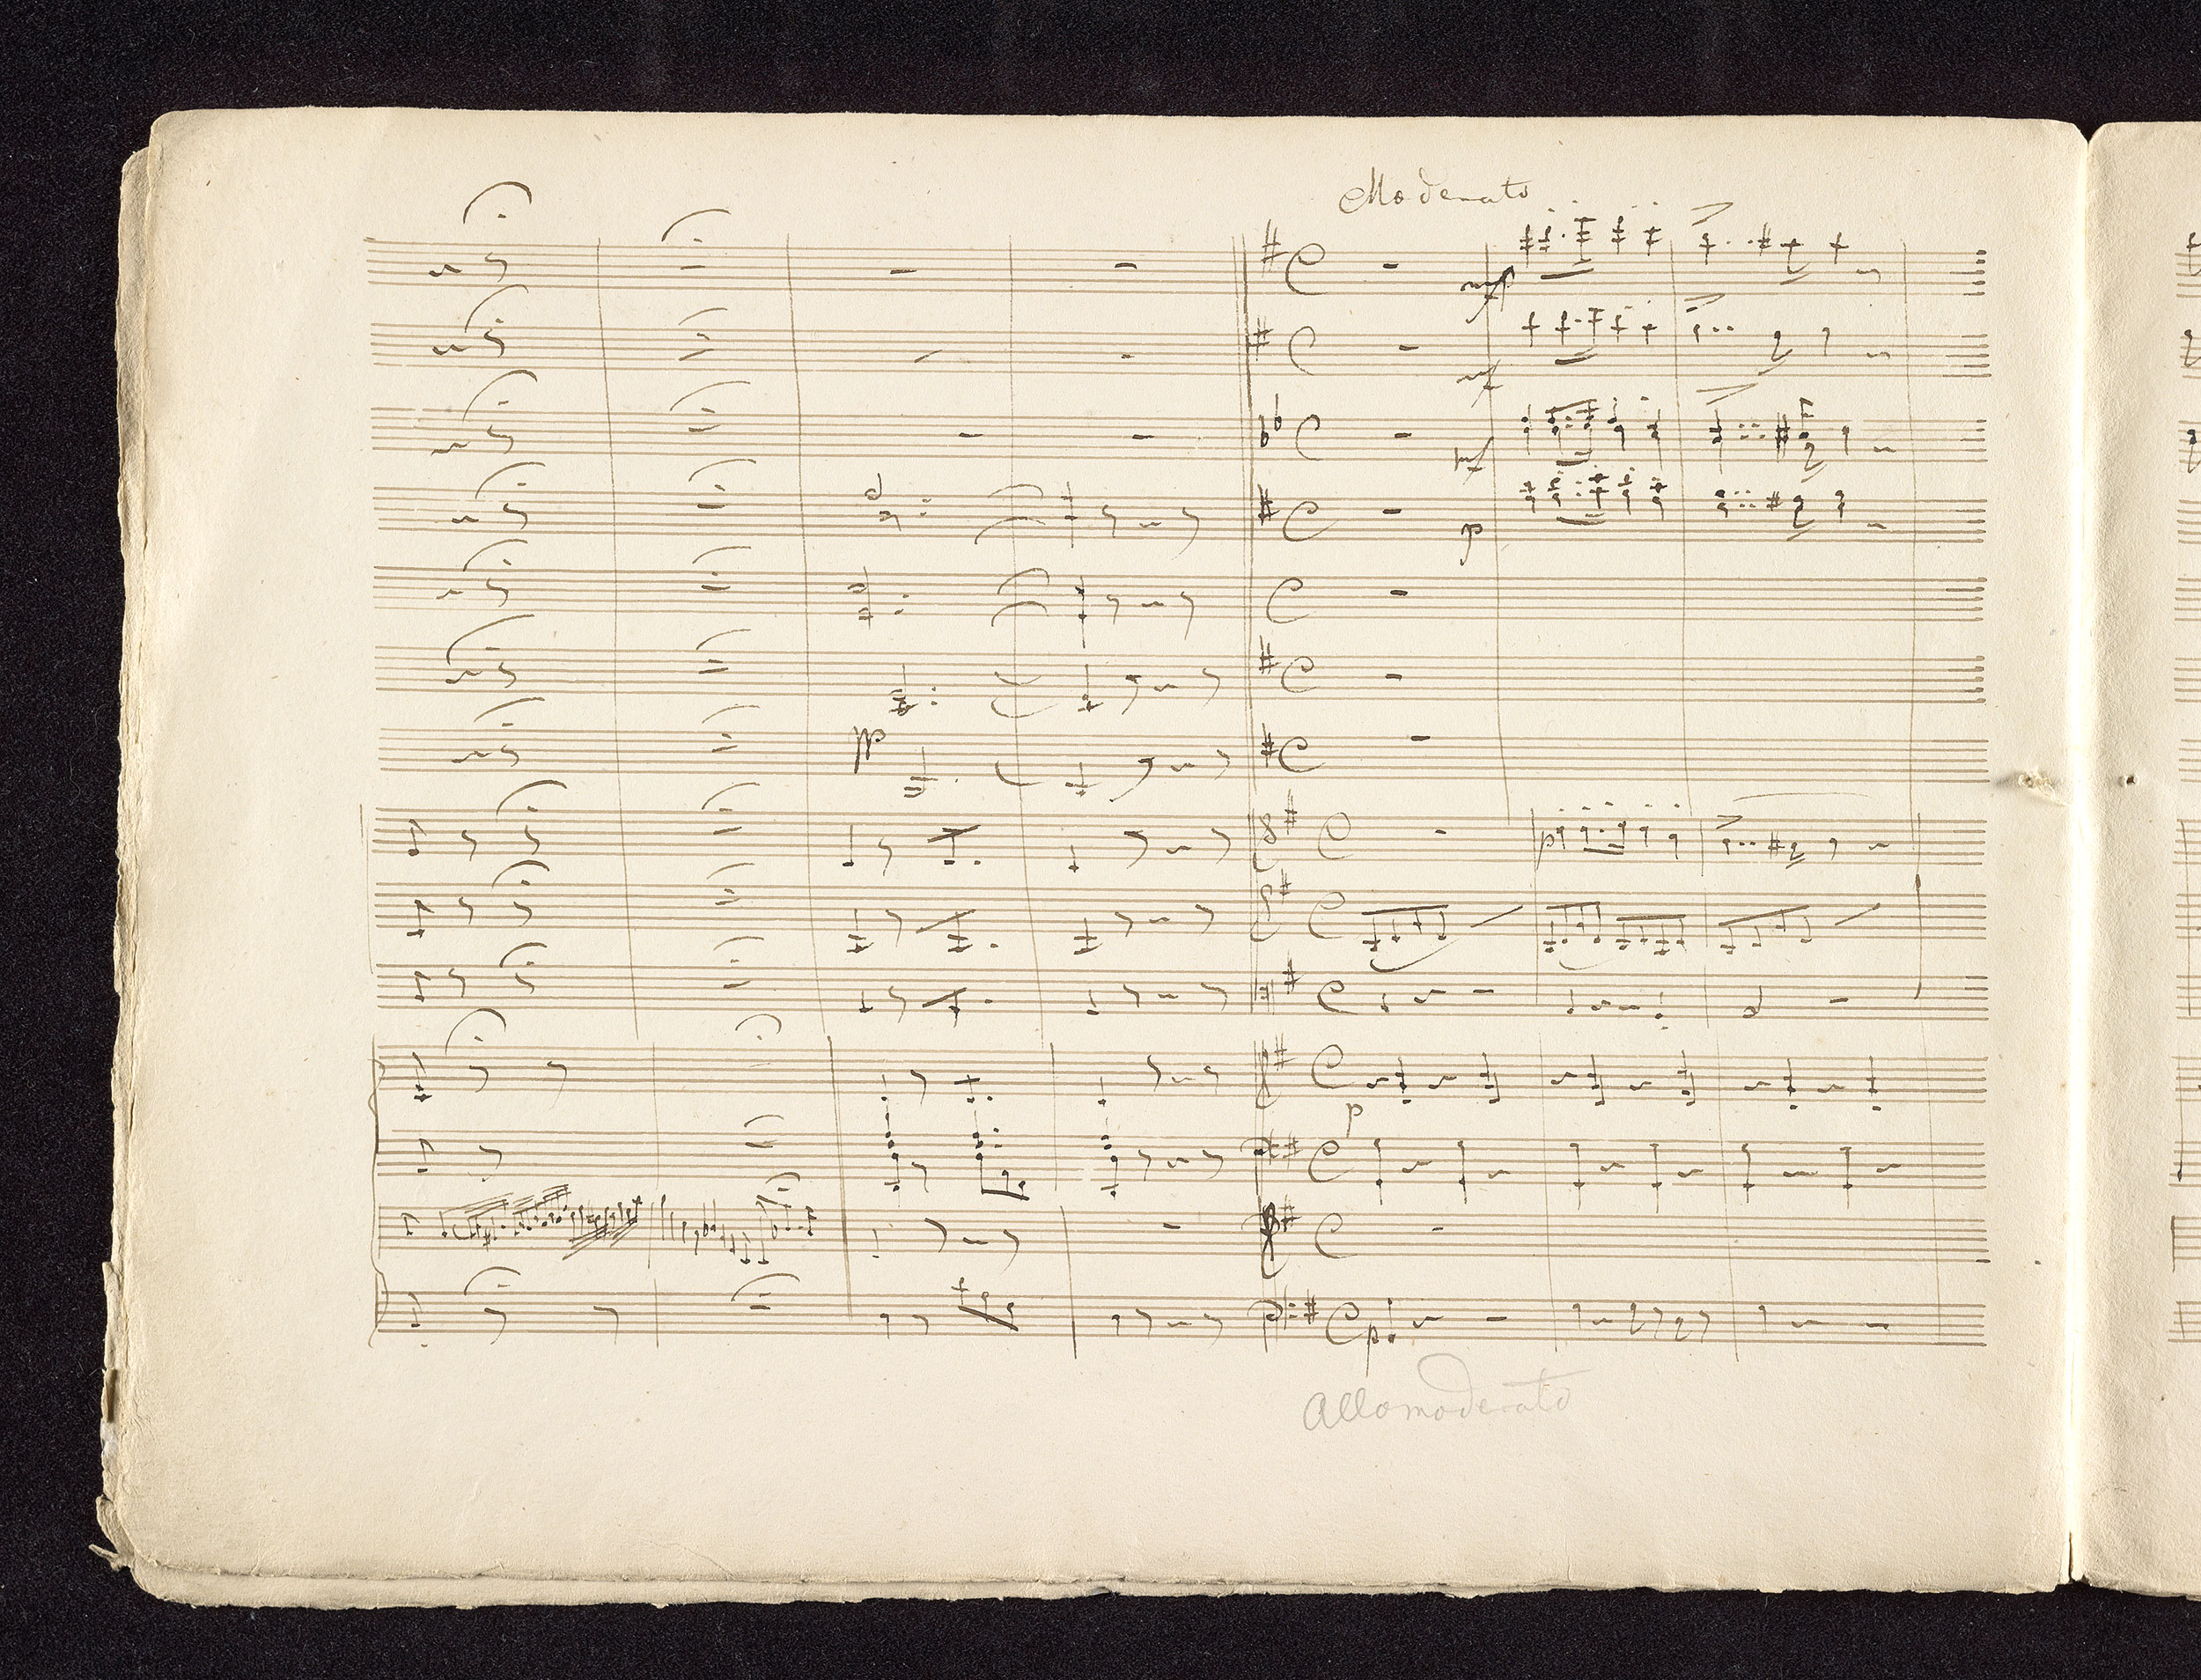 Moderato
mf
mf
mf
p
pp
p
p
p
Allo moderato